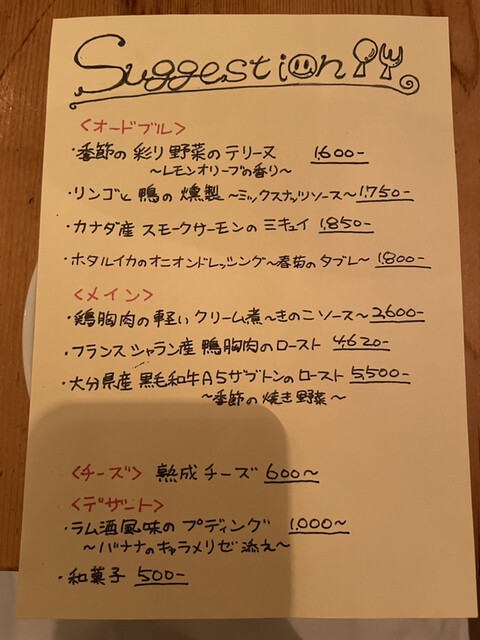 Suggestion
<オードブル>
・季節の彩り野菜のテリーヌ 1,600-
～レモンオリーブの香り～
・リンゴと鴨の燻製～ミックスナッツソース～1,750-
・カナダ産スモークサーモンのミキュイ 1,850-
・ホタルイカのオニオンドレッシング～春菊のタブレ～ 1,800-
<メイン>
・鶏胸肉の軽いクリーム煮～きのこソース～2,600-
・フランスシャラン産鴨胸肉のロースト 4,620-
・大分県産黒毛和牛A5ザブトンのロースト 5,500-
～季節の焼き野菜～
<チーズ> 熟成チーズ 600～
<デザート>
・ラム酒風味のプディング 1,000～
～バナナのキャラメリゼ添え～
・和菓子 500-